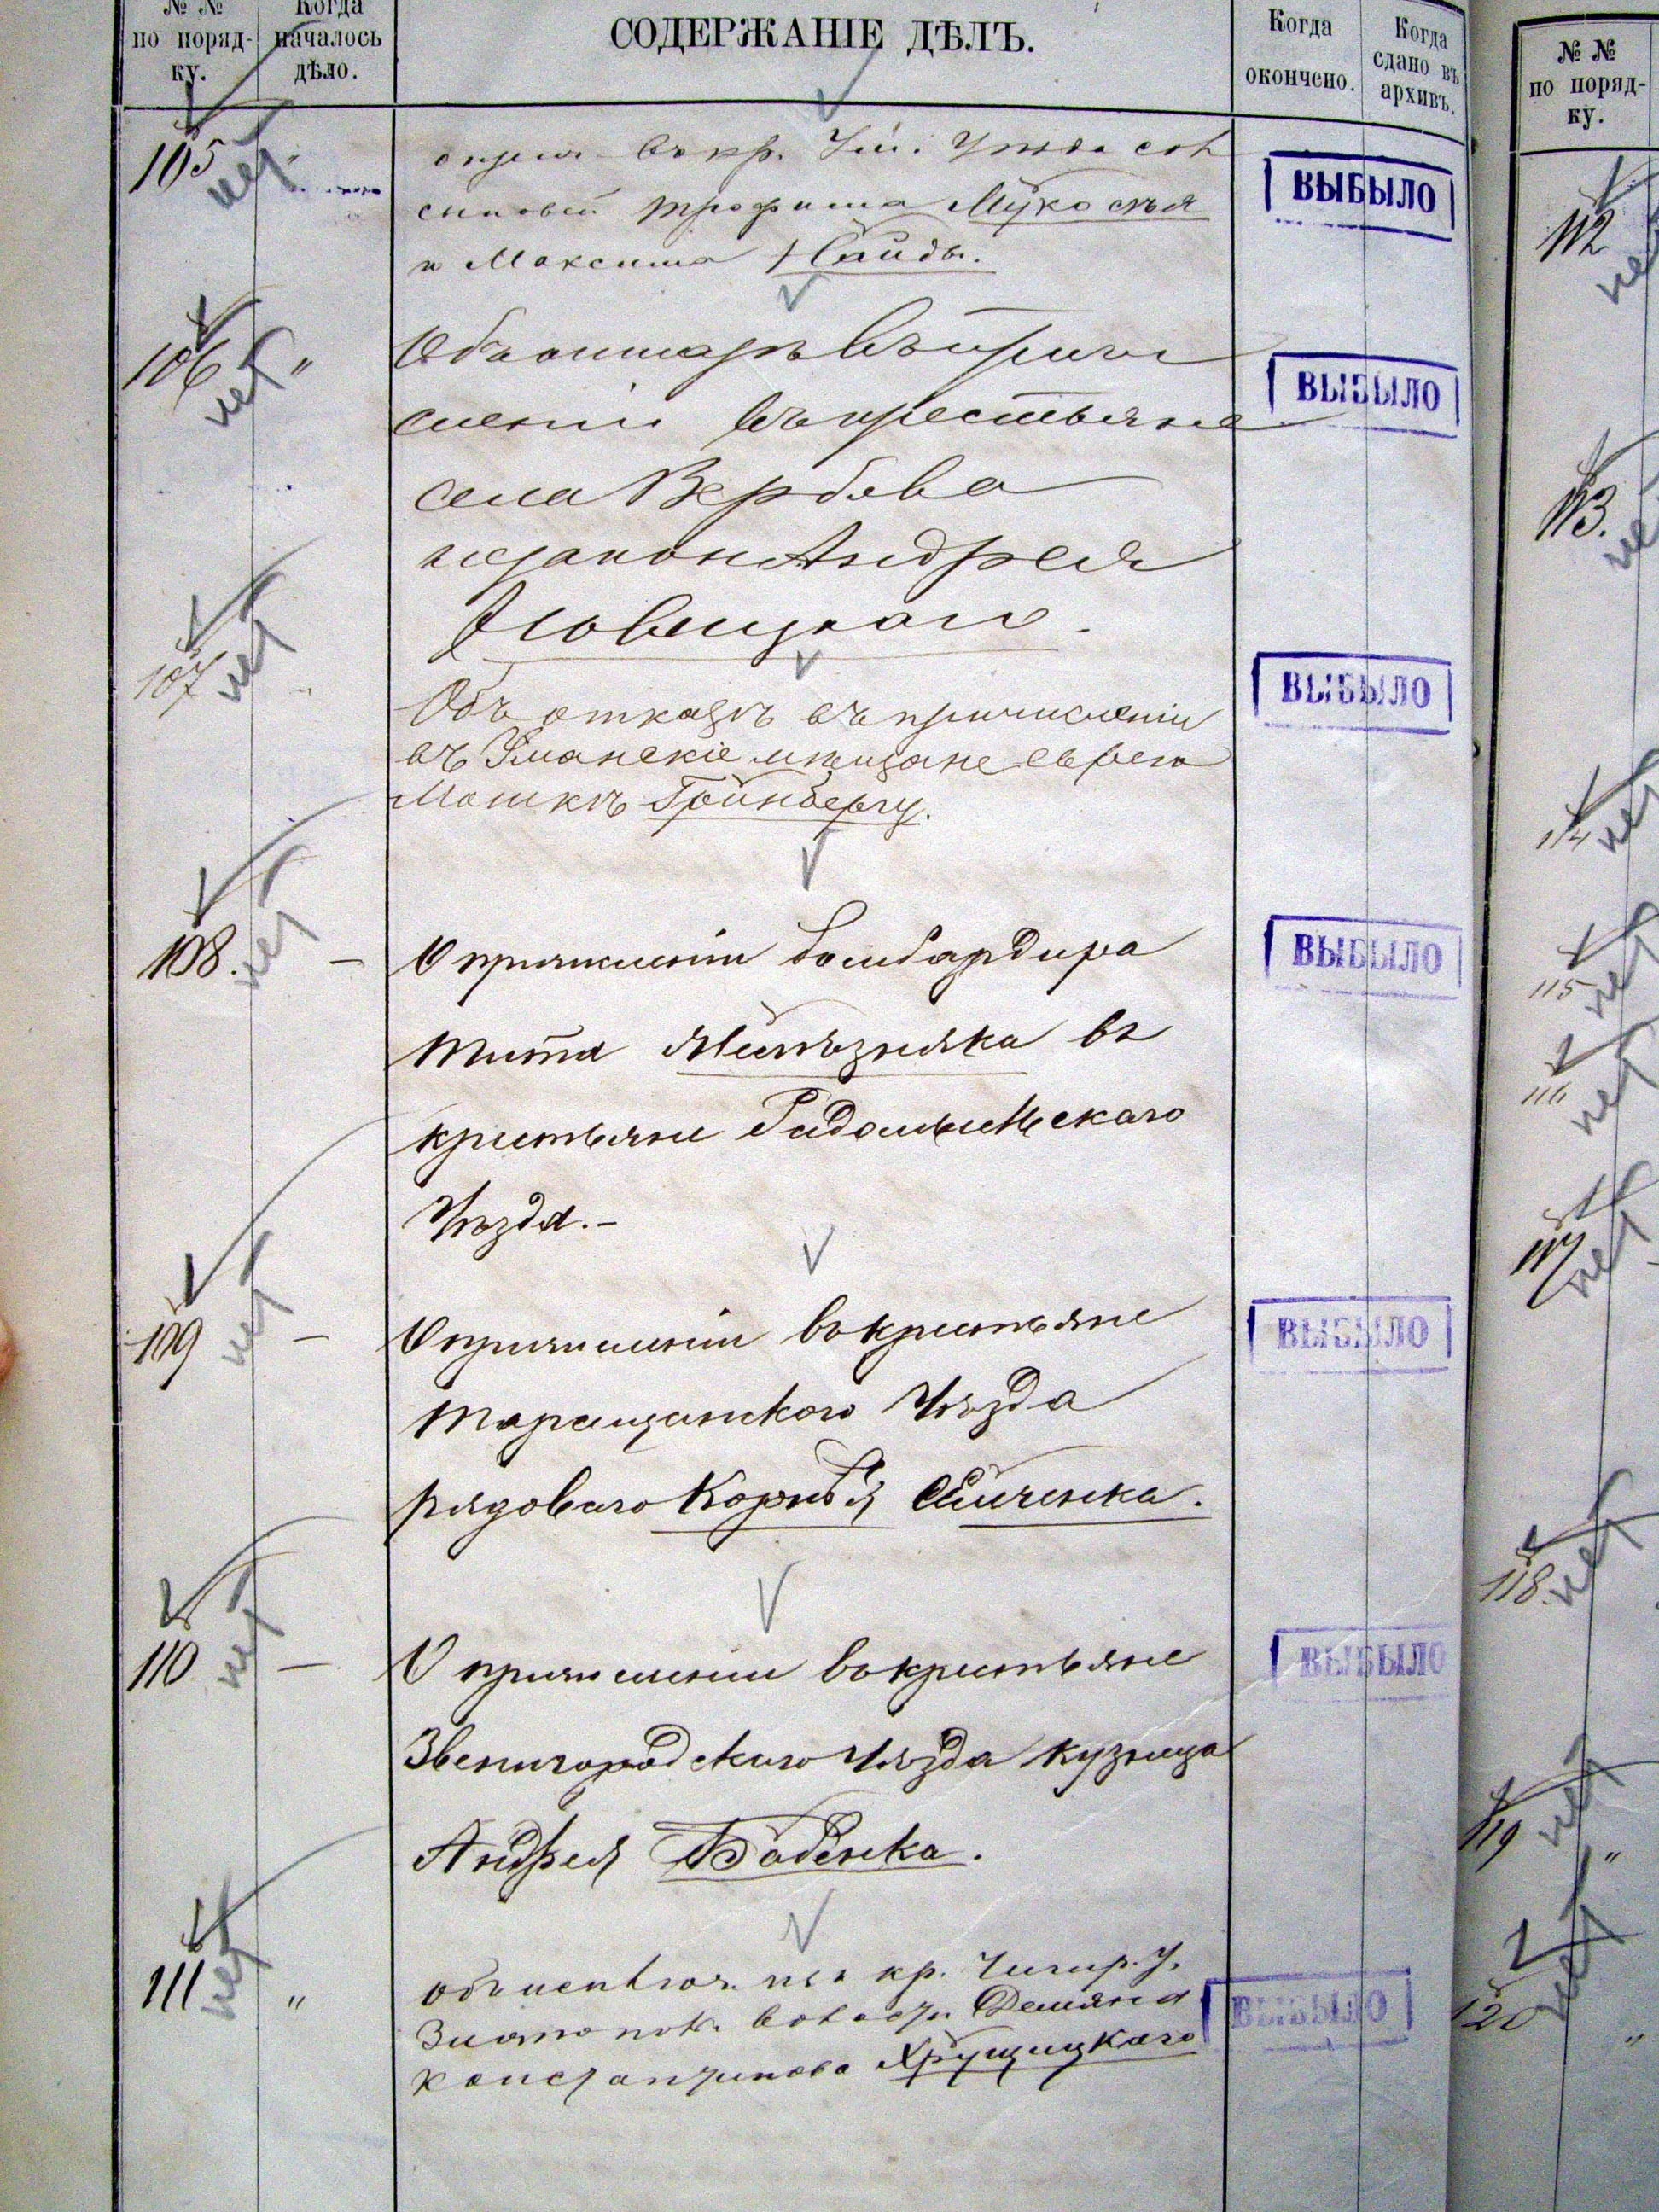 № № по поряд-ку.
Когда началось дѣло.
СОДЕРЖАНІЕ ДѢЛЪ.
Когда окончено.
Когда сдано въ архивъ.
№ № по поряд-ку.
105 нет
сыновей Трофима Мукосѣя
и Максима Найды.
ВЫБЫЛО
106 нет "
Объ отказѣ въ причи
сленіи въ крестьяне
села Вербова
Андрея
Новицкаго.
ВЫБЫЛО
107 нет
Объ отказѣ въ причисленіи
въ Уманскіе мѣщане еврею
Мошкѣ Гринбергу.
ВЫБЫЛО
108. нет —
О причисленіи бомбардира
Тита Желѣзняка въ
крестьяне Радомысльскаго
Уѣзда.—
ВЫБЫЛО
109 нет —
О причисленіи въ крестьяне
Таращанскаго Уѣзда
рядоваго Корнѣя
ВЫБЫЛО
110 нет —
О причисленіи въ крестьяне
Звенигородскаго Уѣзда кузнеца
Андрея Бабенка.
ВЫБЫЛО
111 нет "
Объ исключ. изъ кр. Чигир. у.
Златопол. Демяна
Константинова Хрущицкаго
ВЫБЫЛО
112 не
113. не
114 нет
115 нет
116 нет
117 нет
118. нет
119 нет "
120 нет "